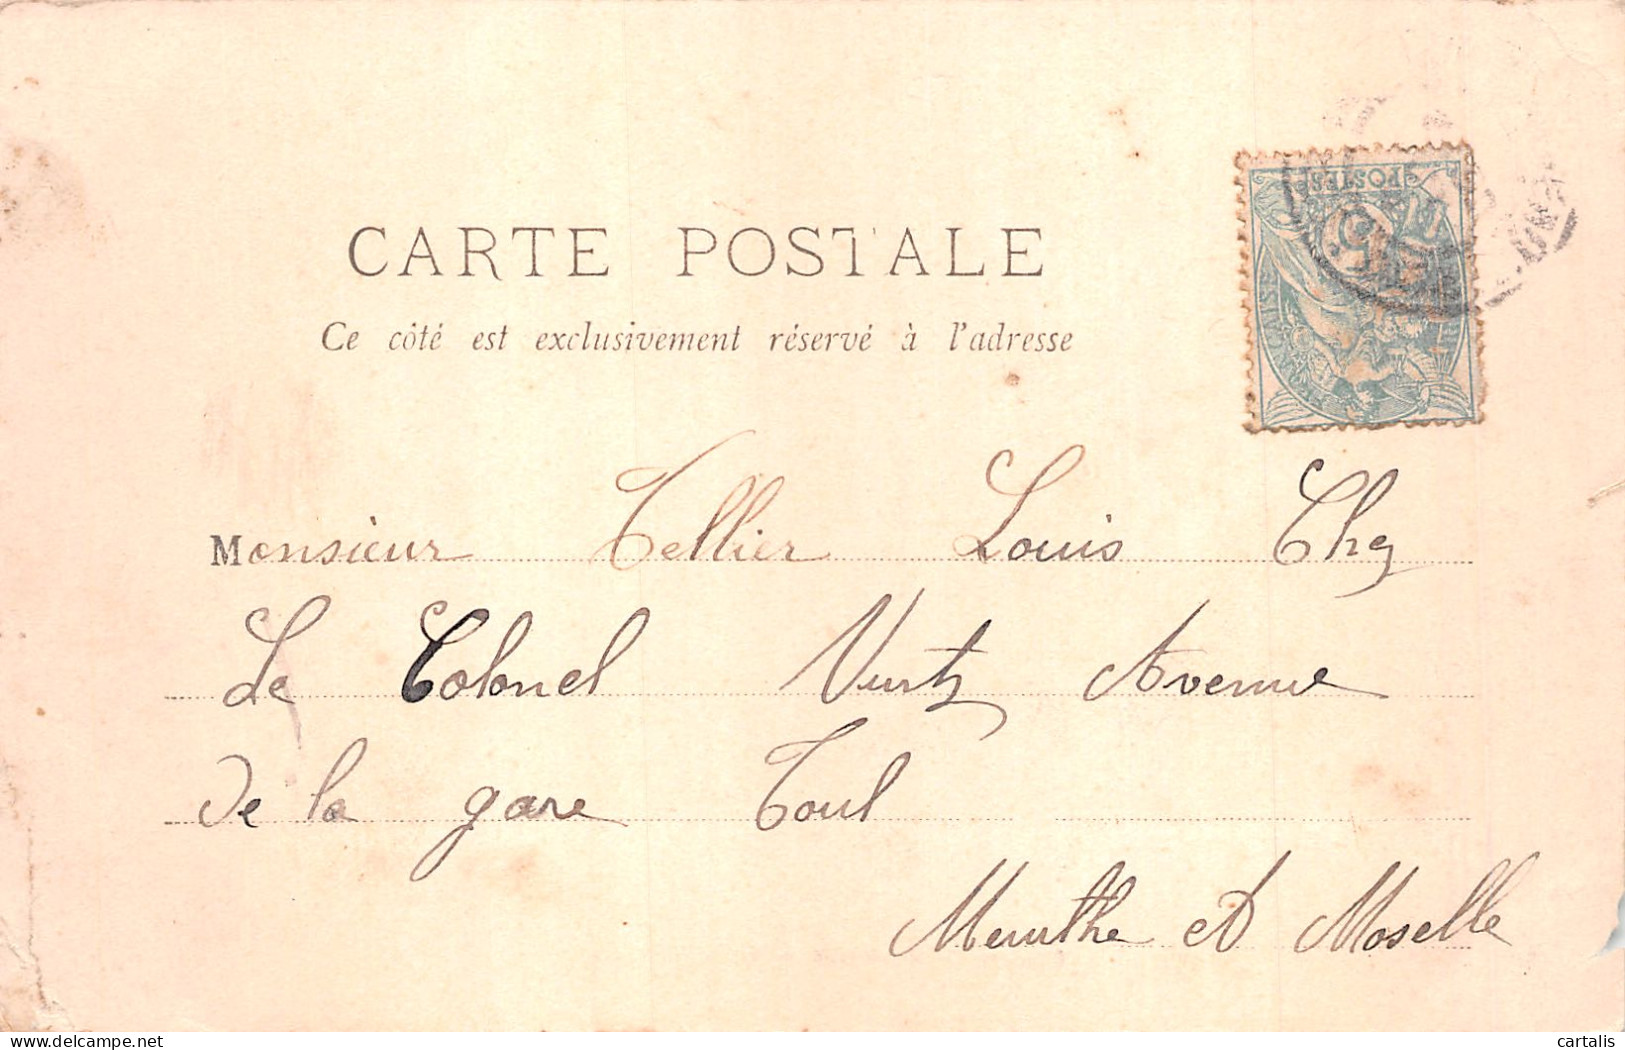 POSTES
CARTE POSTALE
Ce côté est exclusivement réservé à l'adresse
Monsieur Tellier Louis Chez
Le Colonel Avenue
De la gare Toul
Meurthe et Moselle
delcampe.net
cartalis